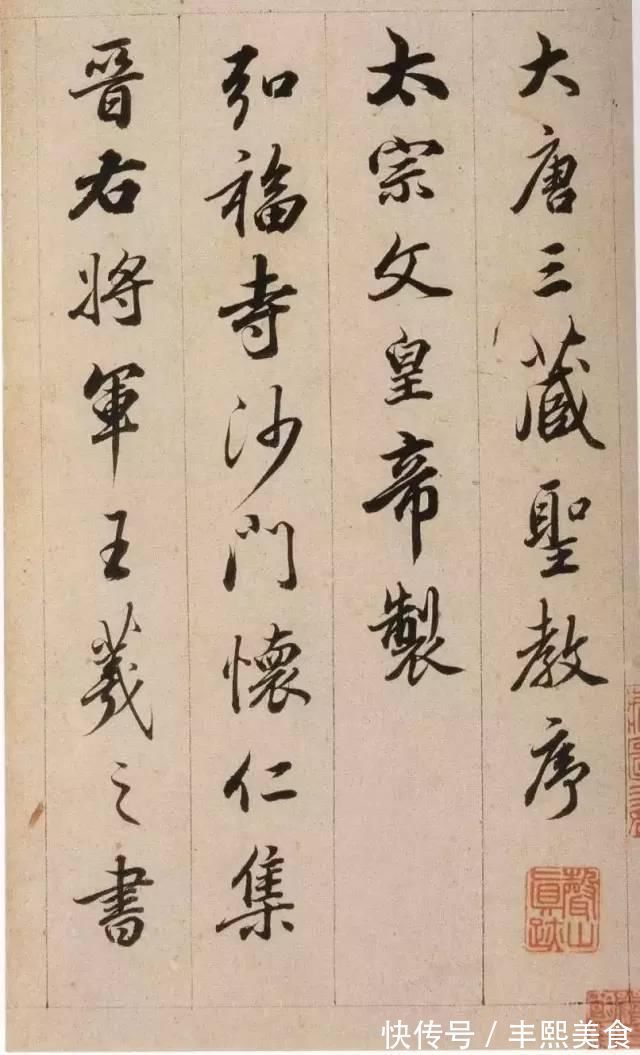 大唐三藏聖教序
太宗文皇帝製
弘福寺沙門懷仁集
晉右將軍王羲之書
快传号／丰熙美食